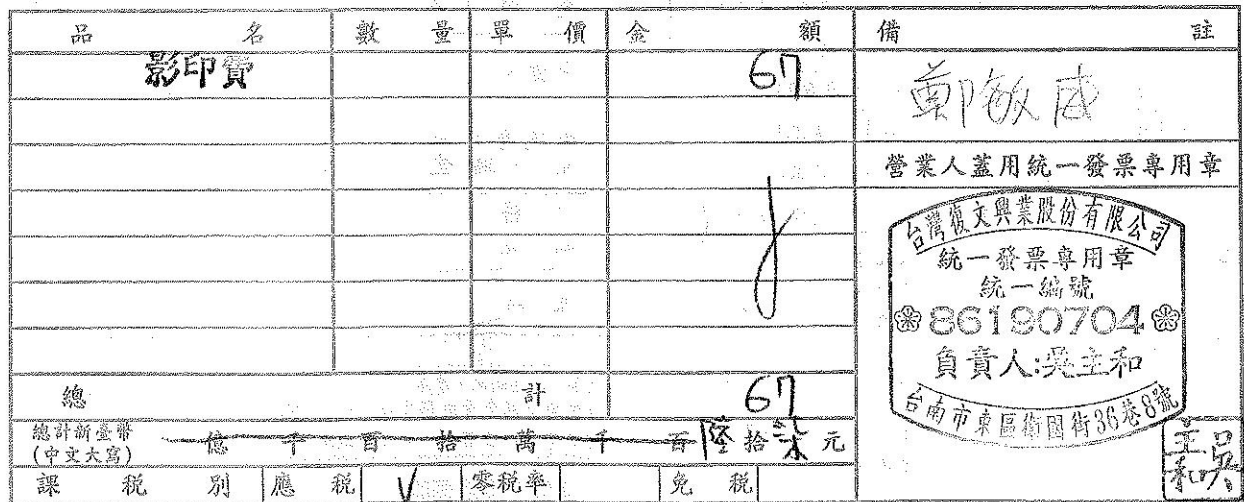 品名 數量 單價 金額 備註
影印費 67
鄭敏成
營業人蓋用統一發票專用章
台灣復文興業股份有限公司
統一發票專用章
統一編號
86190704
負責人:吳主和
台南市東區衛國街36巷8號
總計 67
總計新臺幣 億千百拾萬千百陸拾柒元
(中文大寫)
課稅別 應稅 V 零稅率 免稅
吳主和